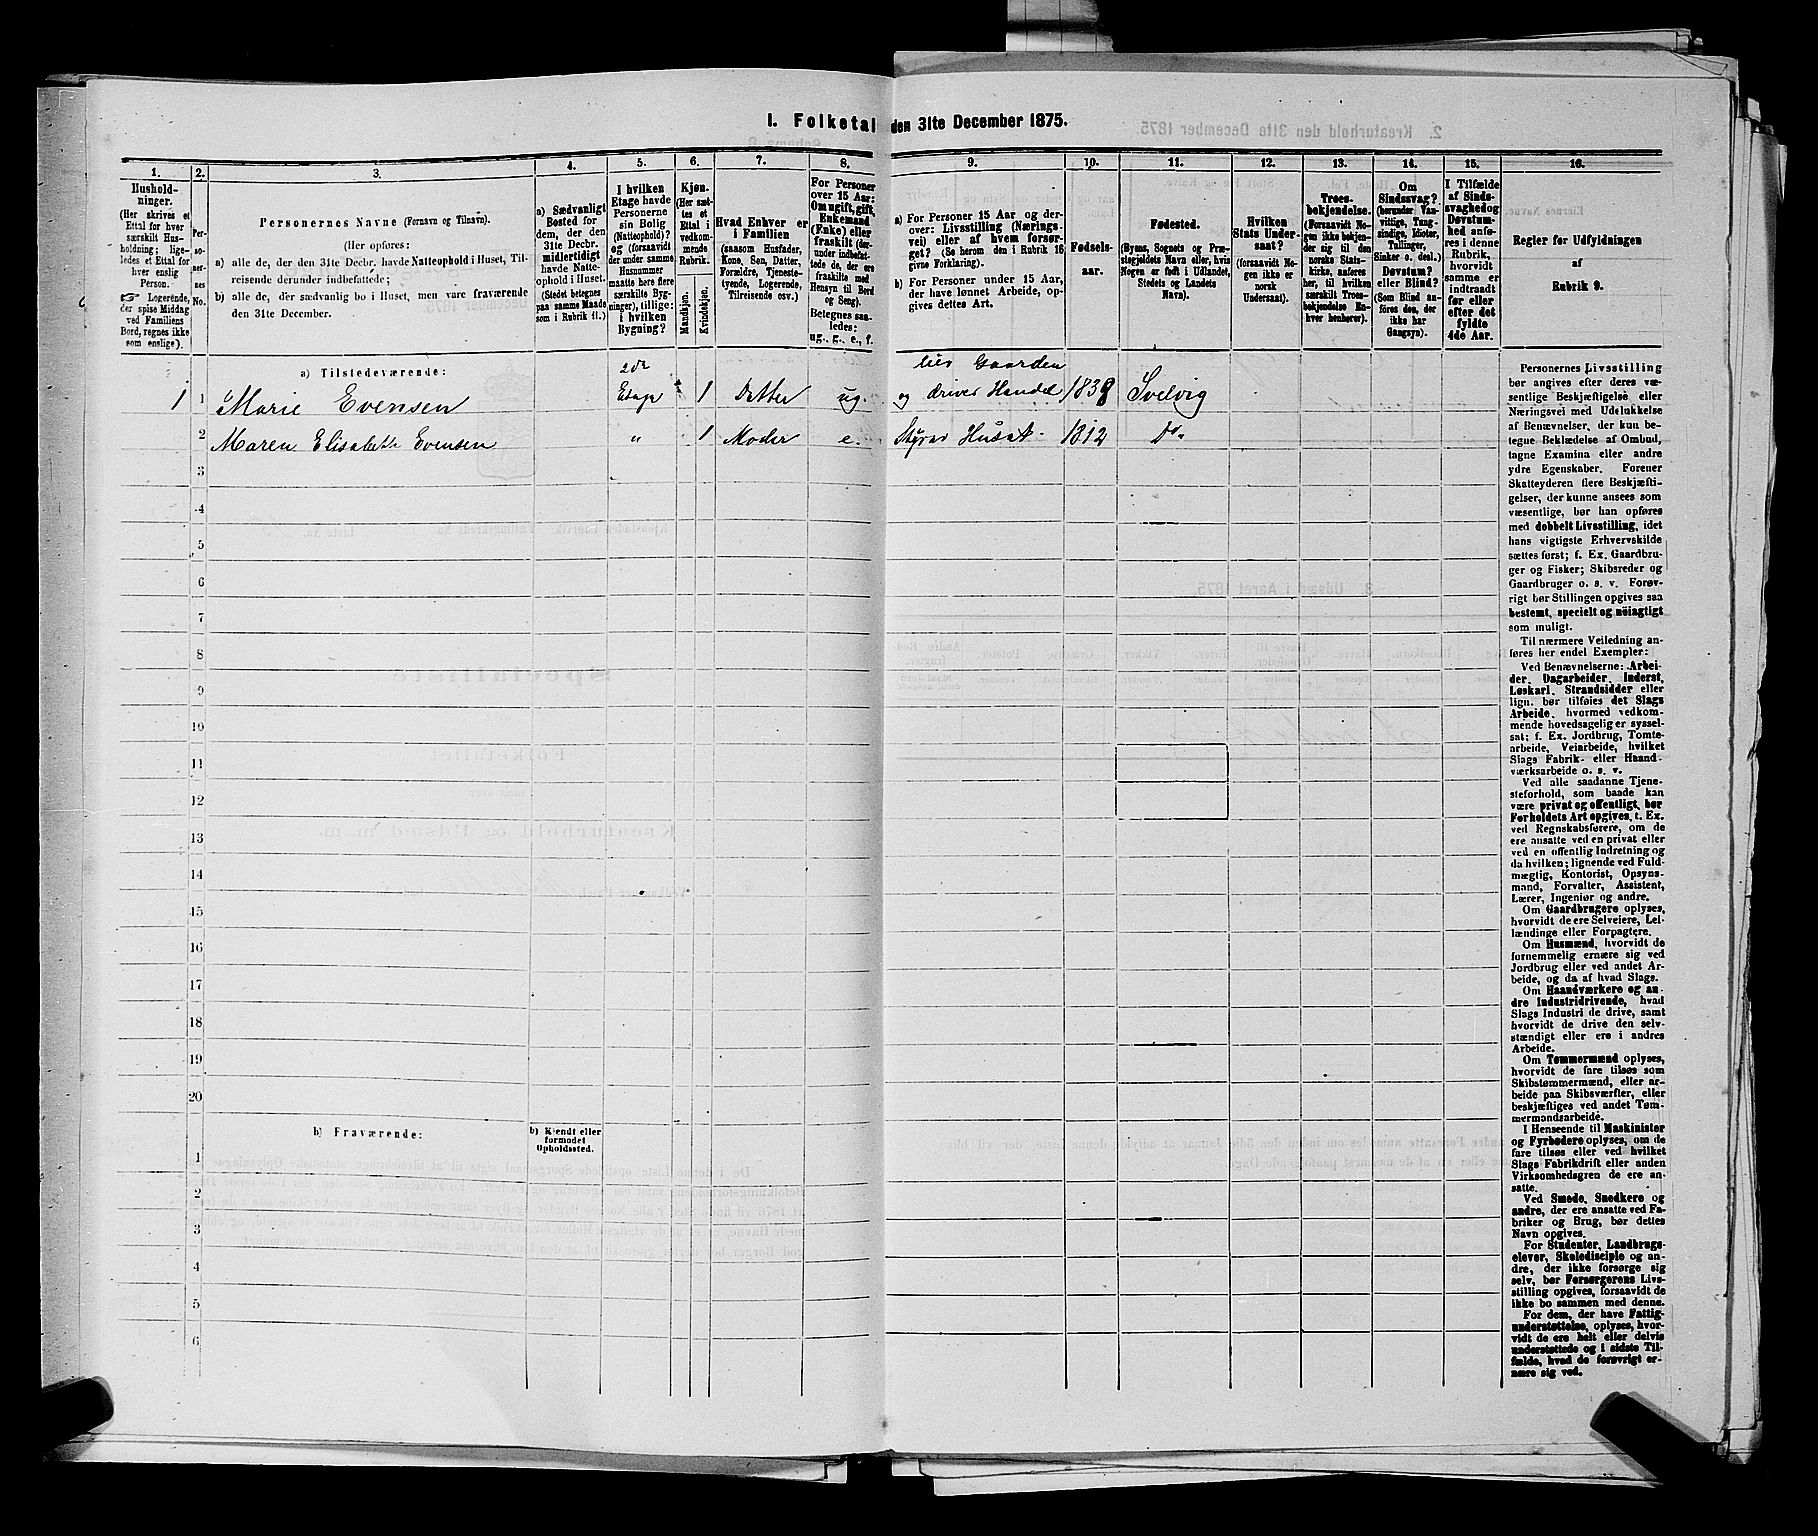 I. Folketal den 31te December 1875.
1. 2. 3. 4. 5. 6. 7. 8. 9. 10. 11. 12. 13. 14. 15. 16.
Hushold-
ninger.
(Her skrives et
Ettal for hver
særskilt Hus-
holdning; lige-
ledes et Ettal for
hver enslig
Person.
☞ Logerende,
der spise Middag
ved Familiens
Bord, regnes ikke
som enslige).
Per-
so-
ner-
nes
No.
Personernes Navne (Fornavn og Tilnavn).
(Her opføres:
a) alle de, der den 31te Decbr. havde Natteophold i Huset, Til-
reisende derunder indbefattede;
b) alle de, der sædvanlig bo i Huset, men vare fraværende
den 31te December.
a) Sædvanligt
Bosted for
dem, der den
31te Decbr.
midlertidigt
havde Natte-
ophold i Huset.
(Stedet betegnes
paa samme Maade
som i Rubrik 11.)
I hvilken
Etage havde
Personerne
sin Bolig
(Natteophold)?
og (forsaavidt
der under samme
Husnummer
maatte høre flere
særskilte Byg-
ninger), tillige:
i hvilken
Bygning?
Kjøn.
(Her sæt-
tes et
Ettal i
vedkom-
mende
Rubrik.
Mandkjøn.
Kvindekjøn.
Hvad Enhver er
i Familien
(saasom Husfader,
Kone, Søn, Datter,
Forældre, Tjeneste-
tyende, Logerende,
Tilreisende osv.)
For Personer
over 15 Aar:
Om ugift, gift,
Enkemand
(Enke) eller
fraskilt (der-
under indbefat-
tede de, der ere
fraskilte med
Hensyn til Bord
og Seng).
Betegnes saa-
ledes:
ug., g., e., f.
a) For Personer 15 Aar og der-
over: Livsstilling (Nærings-
vei) eller af hvem forsør-
get? (Se herom den i Rubrik 16
givne Forklaring).
b) For Personer under 15 Aar,
der have lønnet Arbeide, op-
gives dettes Art.
Fødsels-
aar.
Fødested.
(Byens, Sognets og Præ-
stegjeldets Navn eller, hvis
Nogen er født i Udlandet,
Stedets og Landets
Navn).
Hvilken
Stats Under-
saat?
(forsaavidt No-
gen ikke er
norsk
Undersaat).
Troes-
bekjendelse.
(Forsaavidt No-
gen ikke bekjen-
der sig til den
norske Stats-
kirke, anføres
her, til hvilken
særskilt Troes-
bekjendelse En-
hver henhører).
Om
Sindssvag?
(herunder Van-
vittige, Tung-
sindige, Idioter,
Tullinger,
Sinker o. desl.)
Døvstum?
eller Blind?
(Som Blind an-
føres den, der
ikke har
Gangsyn).
I Tilfælde
af Sinds-
svaghed og
Døvstum-
hed anfø-
res i denne
Rubrik,
hvorvidt
samme er
indtraadt
før eller
efter det
fyldte
4de Aar.
Regler for Udfyldningen
af
Rubrik 9.
a) Tilstedeværende:
1 1 Marie Evensen 2de Etage 1 Datter ug. eier Gaarden og driver Handel 1838 Svelvig
2 Maren Elisabeth Evensen " 1 Moder e. Styrer Huset 1812 Do
3
4
5
6
7
8
9
10
11
12
13
14
15
16
17
18
19
20
b) Fraværende:
b) Kjendt eller
formodet
Opholdssted.
1
2
3
4
5
6
Personernes Livsstilling
bør angives efter deres væ-
sentlige Beskjæftigelse eller
Næringsvei med Udelukkelse
af Benævnelser, der kun be-
tegne Beklædelse af Ombud,
tagne Examina eller andre
ydre Egenskaber. Forener
Skatteyderen flere Beskjæfti-
gelser, der kunne ansees som
væsentlige, bør han opføres
med dobbelt Livsstilling, idet
hans vigtigste Erhvervskilde
sættes først; f. Ex. Gaardbru-
ger og Fisker; Skibsreder og
Gaardbruger o. s. v. Forøv-
rigt bør Stillingen opgives saa
bestemt, specielt og nöiagtigt
som muligt.
Til nærmere Veiledning an-
føres her endel Exempler:
Ved Benævnelserne: Arbei-
der, Dagarbeider, Inderst,
Løskarl, Strandsidder eller
lign. bør tilføies det Slags
Arbeide, hvormed vedkom-
mende hovedsagelig er syssel-
sat; f. Ex. Jordbrug, Tomte-
arbeide, Veiarbeide, hvilket
Slags Fabrik- eller Haand-
værksarbeide o. s. v.
Ved alle saadanne Tjene-
steforhold, som baade kan
være privat og offentligt, bør
Forholdets Art opgives, t. Ex.
ved Regnskabsførere, om de
ere ansatte ved en privat eller
ved en offentlig Indretning og
da hvilken; lignende ved Fuld-
mægtig, Kontorist, Opsyns-
mand, Forvalter, Assistent,
Lærer, Ingeniør og andre.
Om Gaardbrugere oplyses,
hvorvidt de ere Selveiere, Lei-
lændinge eller Forpagtere.
Om Husmænd, hvorvidt de
fornemmelig ernære sig ved
Jordbrug eller ved andet Ar-
beide, og da af hvad Slags.
Om Haandværkere og an-
dre Industridrivende, hvad
Slags Industri de drive, samt
hvorvidt de drive den selv-
stændigt eller ere i andres
Arbeide.
Om Tømmermænd oplyses,
hvorvidt de fare tilsøs som
Skibstømmermænd, eller ar-
beide paa Skibsværfter, eller
beskjæftiges ved andet Tøm-
mermandsarbeide.
I Henseende til Maskinister
og Fyrbødere oplyses, om de
fare tilsøs eller ved hvilket
Slags Fabrikdrift eller anden
Virksomhedsgren de ere an-
satte.
Ved Smede, Snedkere og
andre, der ere ansatte ved Fa-
briker og Brug, bør dettes
Navn opgives.
For Studenter, Landbrugs-
elever, Skoledisciple og an-
dre, der ikke forsørge sig
selv, bør Forsørgerens Livs-
stilling opgives, forsaavidt de
ikke bo sammen med denne.
For dem, der have Fattig-
understøttelse, oplyses, hvor-
vidt de ere helt eller delvis
understøttede og i sidste Til-
fælde, hvad de forøvrigt er-
nære sig ved.